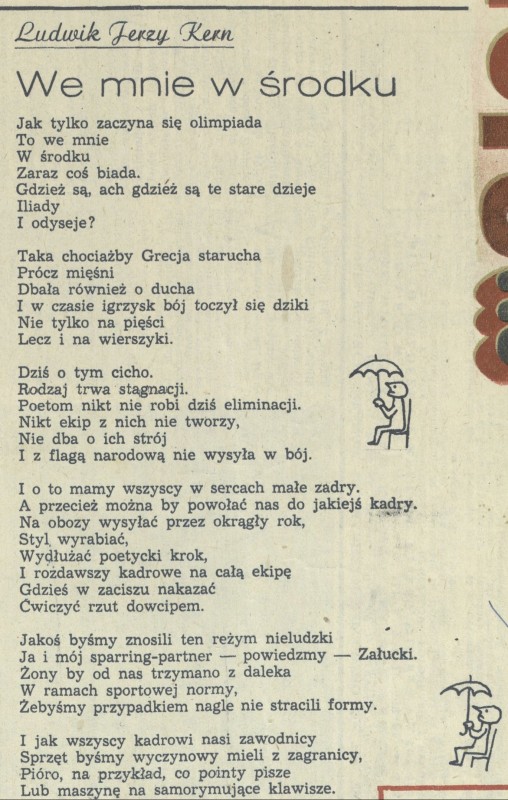 Ludwik Jerzy Kern
We mnie w środku
Jak tylko zaczyna się olimpiada
To we mnie
W środku
Zaraz coś biada.
Gdzież są, ach gdzież są te stare dzieje
Iliady
I odyseje?
Taka chociażby Grecja starucha
Prócz mięśni
Dbała również o ducha
I w czasie igrzysk bój toczył się dziki
Nie tylko na pięści
Lecz i na wierszyki.
Dziś o tym cicho.
Rodzaj trwa stagnacji.
Poetom nikt nie robi dziś eliminacji.
Nikt ekip z nich nie tworzy,
Nie dba o ich strój
I z flagą narodową nie wysyła w bój.
I o to mamy wszyscy w sercach małe zadry.
A przecież można by powołać nas do jakiejś kadry.
Na obozy wysyłać przez okrągły rok,
Styl wyrabiać,
Wydłużać poetycki krok,
I rozdawszy kadrowe na całą ekipę
Gdzieś w zaciszu nakazać
Ćwiczyć rzut dowcipem.
Jakoś byśmy znosili ten reżym nieludzki
Ja i mój sparring-partner — powiedzmy — Załucki.
Żony by od nas trzymano z daleka
W ramach sportowej normy,
Żebyśmy przypadkiem nagle nie stracili formy.
I jak wszyscy kadrowi nasi zawodnicy
Sprzęt byśmy wyczynowy mieli z zagranicy,
Pióro, na przykład, co pointy pisze
Lub maszynę na samorymujące klawisze.